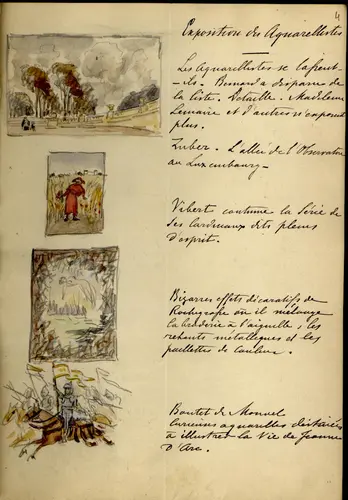 4
Exposition des Aquarellistes
Les Aquarellistes se
-ils. Besnard a disparu de
la liste. Detaille. Madeleine
Lemaire et d'autres n'exposent
plus.
Zuber. L'allée de l'Observatoire
au Luxembourg -
Vibert continue la Série de
ses Cardinaux dits pleins
d'esprit.
Bizarres effets décoratifs de
Rochegrosse où il mélange
la broderie à l'aiguille ; les
rehauts metalliques et les
paillettes de couleur.
Boutet de Monvel
Curieuses aquarelles destinées
à illustrer la Vie de Jeanne
d'Arc.